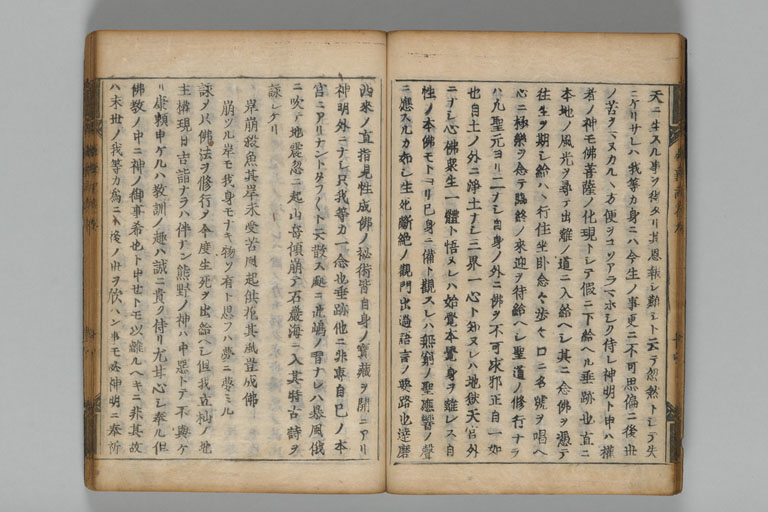 天ニ生スル事ヲ待タリ其恩報シ難シト云テ忽然トシテ失
ニケリサレハ我等カ身ニハ今生ノ事更ニ不可思偏ニ後世
ノ苦ヲマヌカルヽ方便ヲコソアラマホシク侍レ神明ト申ハ権
者ノ神モ佛菩薩ノ化現トシテ假ニ下給ヘル垂跡也直ニ
本地ノ風光ヲ尋テ出離ノ道ニ入給ヘシ其ニ念佛ヲ憑テ
往生ヲ期シ給ハヽ行住坐卧念々歩々口ニ名號ヲ唱ヘ
心ニ極樂ヲ念テ臨終ノ來迎ヲ待給ヘシ聖道ノ修行ナラ
ハ凡聖元ヨリ二ナシ自身ノ外ニ佛ヲ不可求邪正自一如
也自土ノ外ニ淨土ナシ三界一心ト知ヌレハ地獄天宮外
ニナシ心佛衆生一體ト悟ヌレハ始覺本覺身ヲ離レス自
性ノ本佛モトヨリ己身ニ備ト觀スレハ無窮ノ聖應響ノ聲
ニ應スルカ如シ生死斷絶ノ觀門出過語言ノ要路也達磨
西來ノ直指見性成佛ノ秘術皆自身ノ寶藏ヲ開ニアリ
神明外ニナシ只我等カ一念也垂跡他ニ非專自己ノ本
宮ニアリナント
天散ス
ノ習ナレハ暴風俄
ニ吹テ地震忽ニ起山岳傾崩テ石巖海ニ入其時古詩ヲ
詠シケリ
岸崩殺魚其岸未受苦風起供花其風豈成佛
崩ツル岸モ我身モナキ物ソ有ト思フハ夢ニ夢ミル
詠ヲハ佛法ヲ修行ヲ今度生死ヲ出給ヘシ但我立杣ノ地
主權現日吉詣ナラハ伴ナン熊野ノ神ハ中惡トテ不與ケ
リ康頼申ケルハ教訓ノ趣ハ誠ニ貴ク侍リ尤甘心シ奉ル但
佛教ノ中ニ神ノ御事希也ト申セトモ以離ルヘキニ非其故
ハ末世ノ我等カ爲ニハ後ノ世ヲ欣ハン事モ必神明ニ奉祈